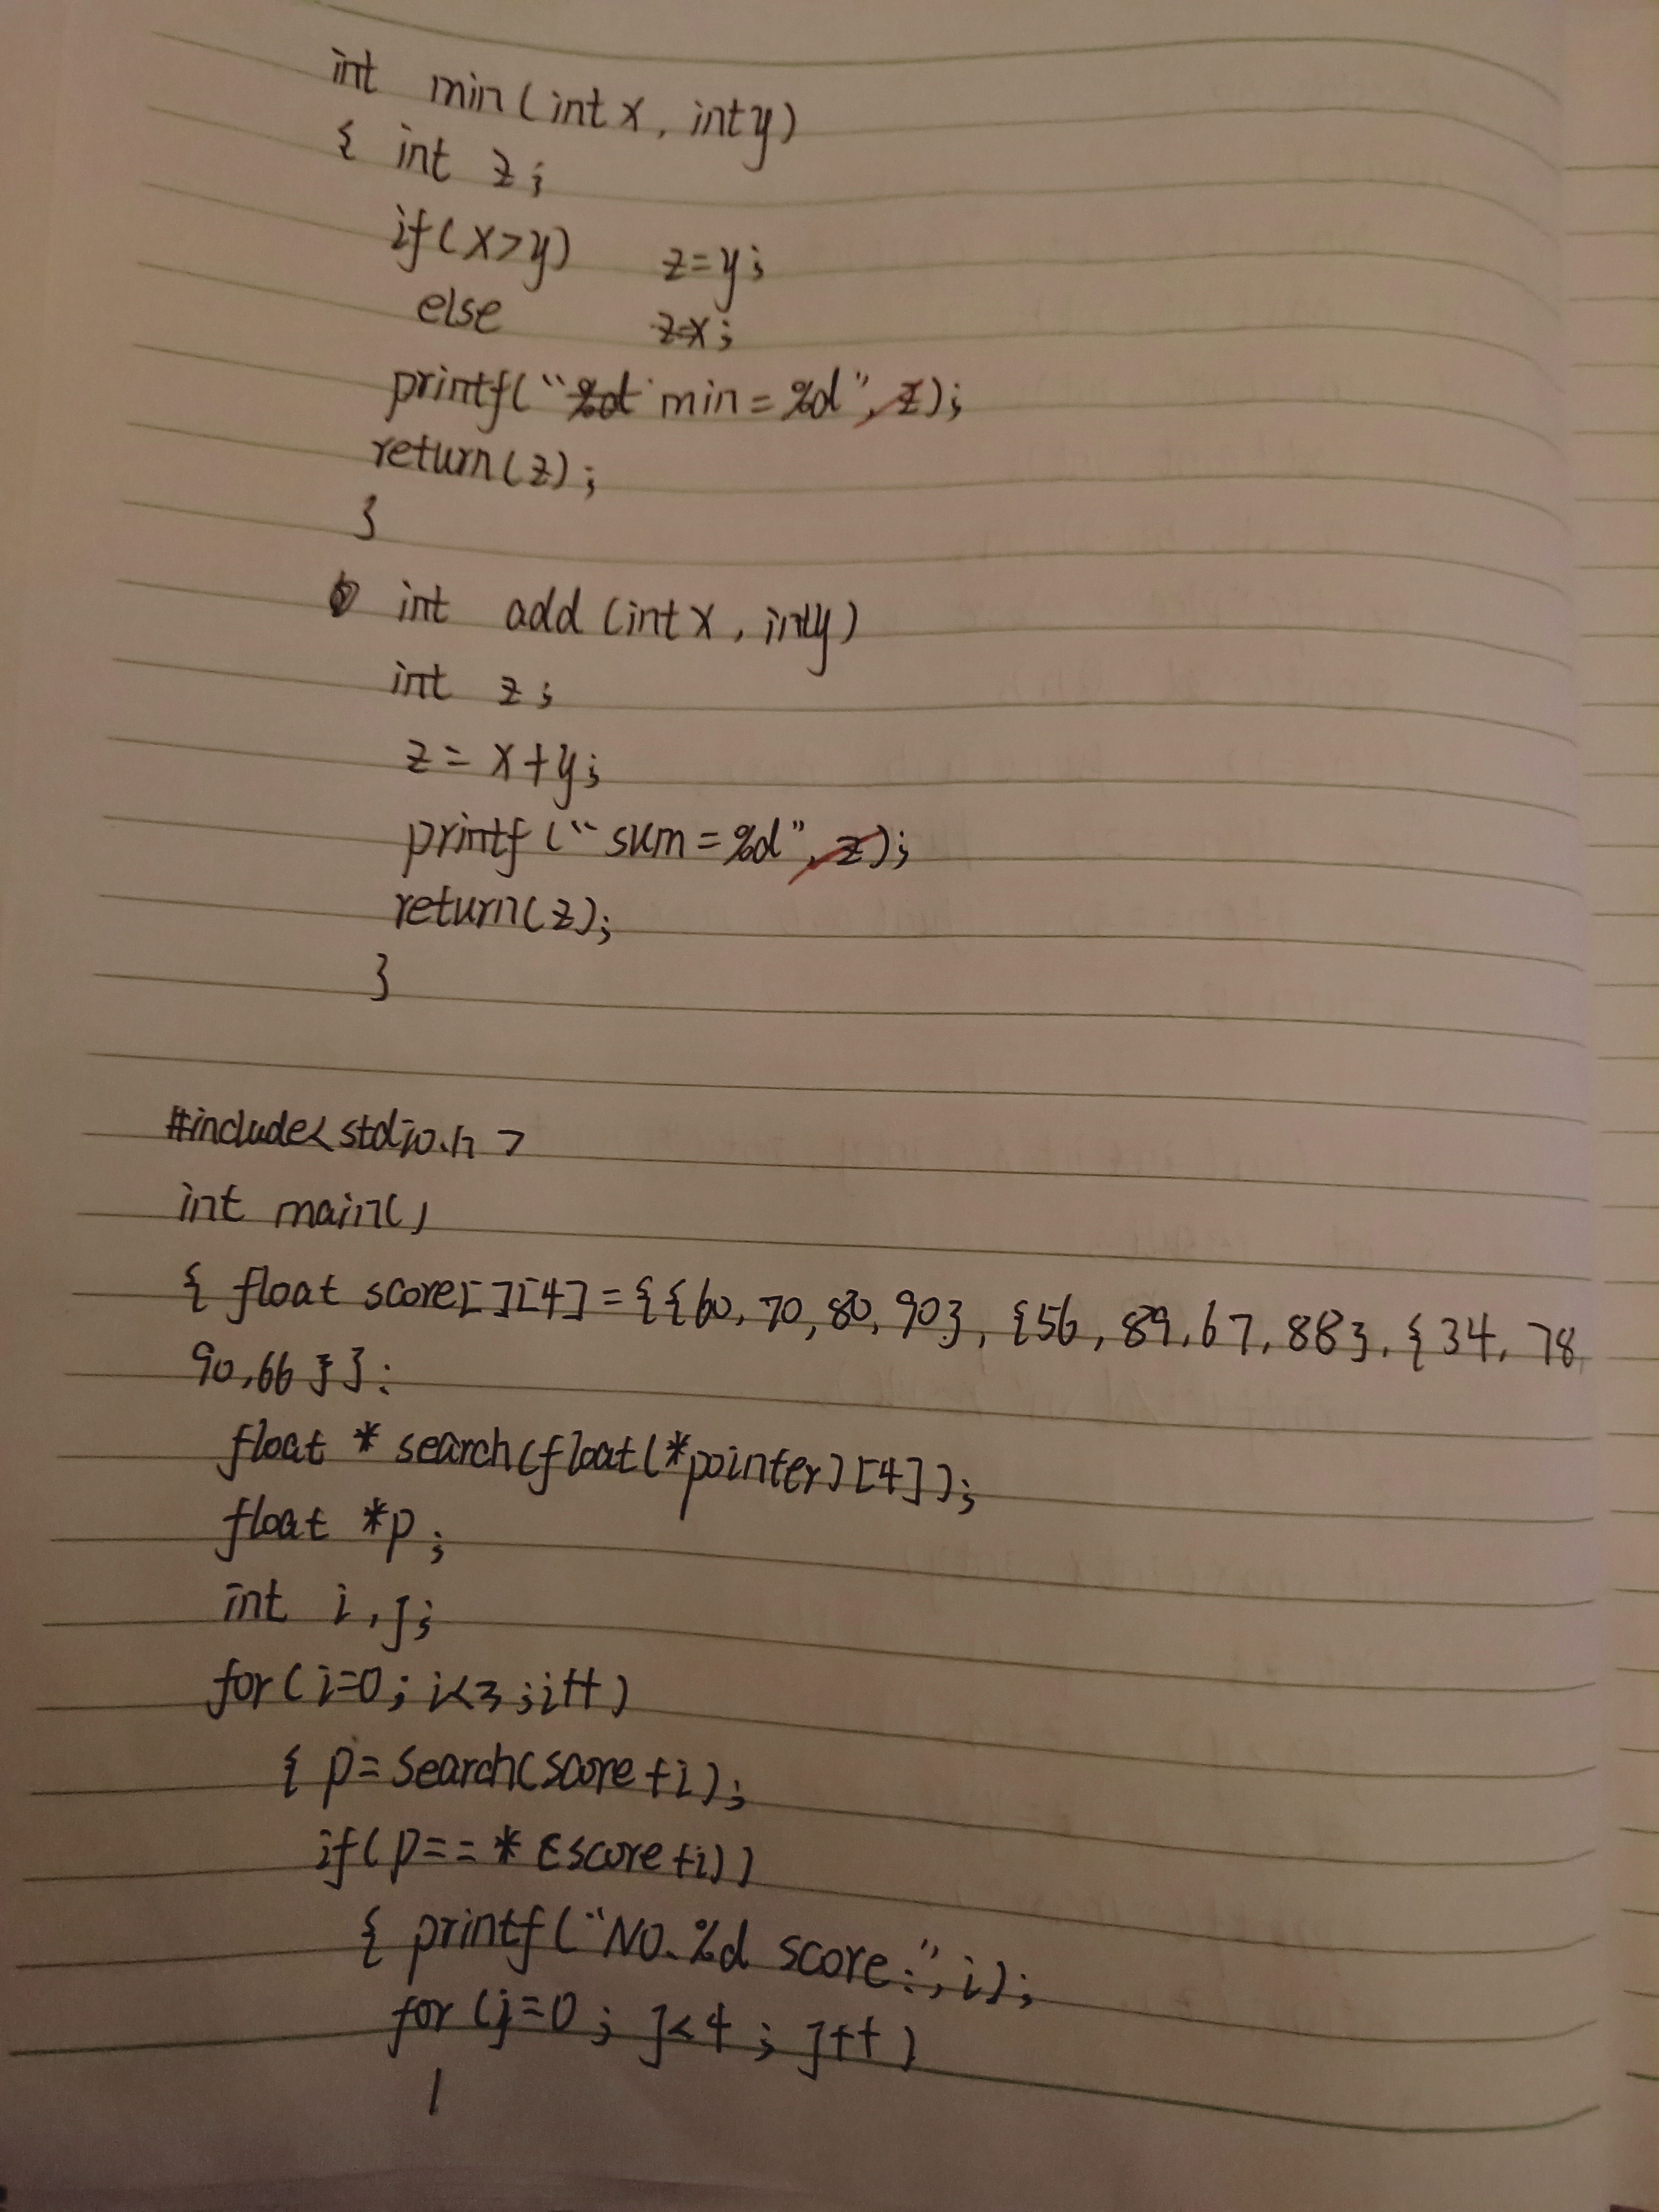 int min(int x, int y)
{ int z;
if(x>y) z=y;
else z=x;
printf("%d min=%d", z);
return(z);
}
int add (int x, int y)
int z;
z = x+y;
printf("sum=%d", z);
return(z);
}
#include<stdio.h>
int main()
{ float score[][4]={{60,70,80,90},{56,89,67,88},{34,78,
90,66}};
float * search(float(*pointer)[4]);
float *p;
int i,j;
for(i=0;i<3;i++)
{ p=search(score+i);
if(p==*(score+i))
{ printf("NO.%d score:",i);
for(j=0;j<4;j++)